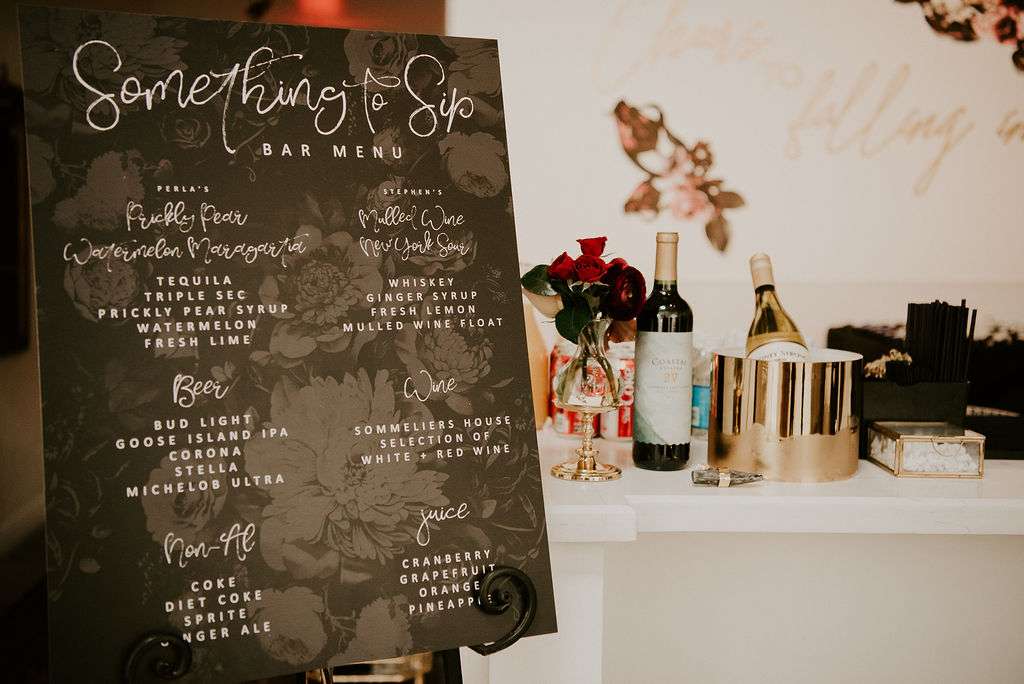 Something to Sip
BAR MENU
PERLA'S
Prickly Pear
Watermelon Maragartia
TEQUILA
TRIPLE SEC
PRICKLY PEAR SYRUP
WATERMELON
FRESH LIME
STEPHEN'S
Mulled Wine
New York Sour
WHISKEY
GINGER SYRUP
FRESH LEMON
MULLED WINE FLOAT
Beer
BUD LIGHT
GOOSE ISLAND IPA
CORONA
STELLA
MICHELOB ULTRA
Wine
SOMMELIERS HOUSE
SELECTION OF
WHITE + RED WINE
Non-Al
COKE
DIET COKE
SPRITE
NGER ALE
Juice
CRANBERRY
GRAPEFRUIT
ORANGE
PINEAPPLE
Cheers
TO
falling in
COASTAL